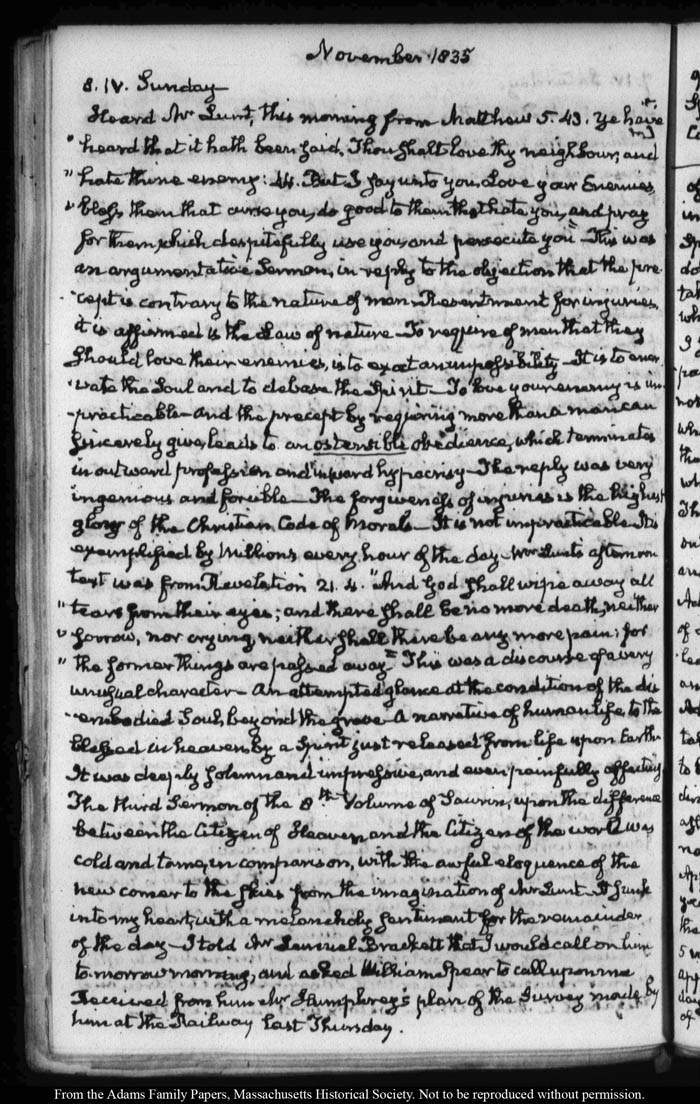 November 1835
8. IV. Sunday
Heard Mr Lunt, this morning from Matthew 5. 43. Ye have
" heard that it hath been said, Thou shalt love thy neighbour, and
" hate thine enemy: 44. But I say unto you, Love your Enemies,
" bless them that curse you, do good to them that hate you, and pray
for them which despitefully use you, and persecute you" This was
an argumentative Sermon, in reply to the objection that the pre-
-cept is contrary to the nature of man. Resentment for injuries,
it is affirmed is the Law of nature—To require of man that they
should love their enemies, is to exact an impossibility—It is to ener
-vate the Soul and to debase the Spirit—To love your enemy is im-
-practicable—and the precept by requiring more than a man can
sincerely give, leads to an ostensible obedience, which terminates
in outward profession and inward hypocrisy—The reply was very
ingenious and forcible—The forgiveness of injuries is the highest
glory of the Christian Code of Morals—It is not impracticable. It is
exemplified by Millions every hour of the day—Mr Lunt's afternoon
text was from Revelation 21. 4. "And God shall wipe away all
" tears from their eyes; and there shall be no more death, neither
" sorrow, nor crying, neither shall there be any more pain: for
" the former things are passed away" This was a discourse of a very
unusual character—An attempted glance at the condition of the dis
-embodied Soul, beyond the grave—A narrative of human life, to the
blessed in heaven, by a Spirit just released from life upon Earth.
It was deeply solemn and impressive, and even painfully affecting
The third Sermon of the 8th Volume of Saurin, upon the difference
between the Citizen of Heaven and the Citizen of the world was
cold and tame, in comparison, with the awful eloquence of the
new comer to the skies from the imagination of Mr Lunt—It sunk
into my heart, with a melancholy sentiment for the remainder
of the day—I told Mr Lemuel Brackett that I would call on him
to-morrow morning, and asked William Spear to call upon me
Received from him Mr Humphrey's plan of the Survey made by
him at the Railway last Thursday.
From the Adams Family Papers, Massachusetts Historical Society. Not to be reproduced without permission.